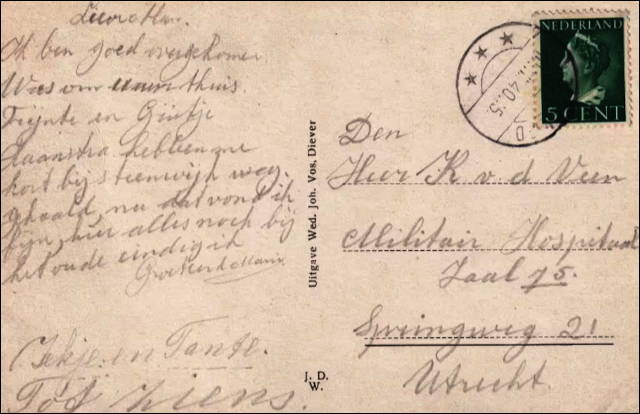 Lieve Man.
Ik ben goed overgekomen
Was om uur thuis.
Trijnte en Grietje
Haanstra hebben me
kort bij steenwijk weg
gehaald nu dat vond ik
fijn, hier alles noch bij
het oude eindig ik
Groeten
en Tante.
Tot ziens.
Uitgave Wed. Joh. Vos, Diever
J. D.
W.
NEDERLAND
5 CENT
40
D
Den
Heer K v d Veen
Militair Hospitaal
Zaal 75.
Springweg 21
Utrecht.